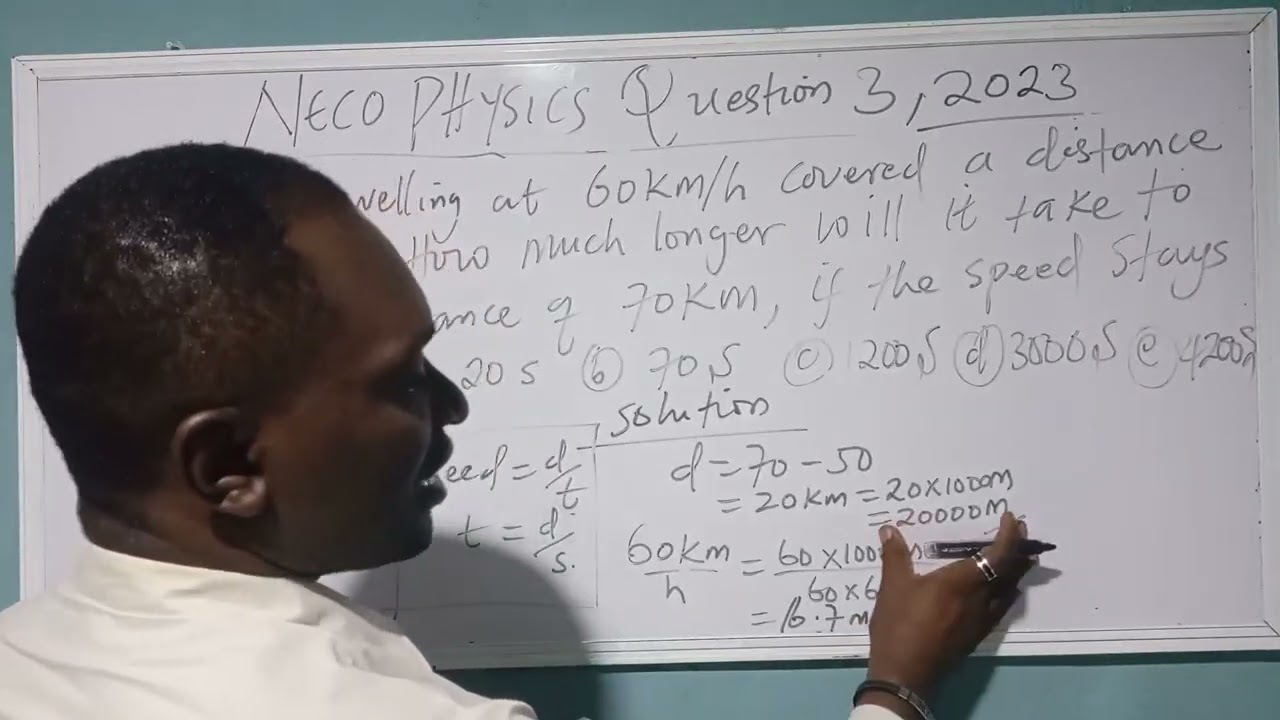 NECO PHYSICS Question 3, 2023
velling at 60km/h covered a distance
How much longer will it take to
ance of 70km, if the speed stays
20 s (b) 70s (c) 1200s (d) 3000s (e) 4200s
Solution
eed = d/t
t = d/s.
d = 70 - 50
= 20km = 20x1000m
= 20000m
60km/h = 60x100
60x6
= 16.7m